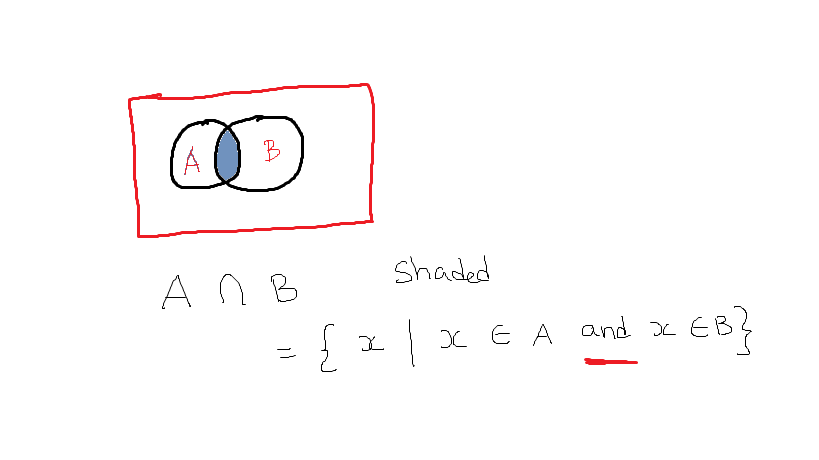 A B
A ∩ B shaded
= { x | x ∈ A and x ∈ B }